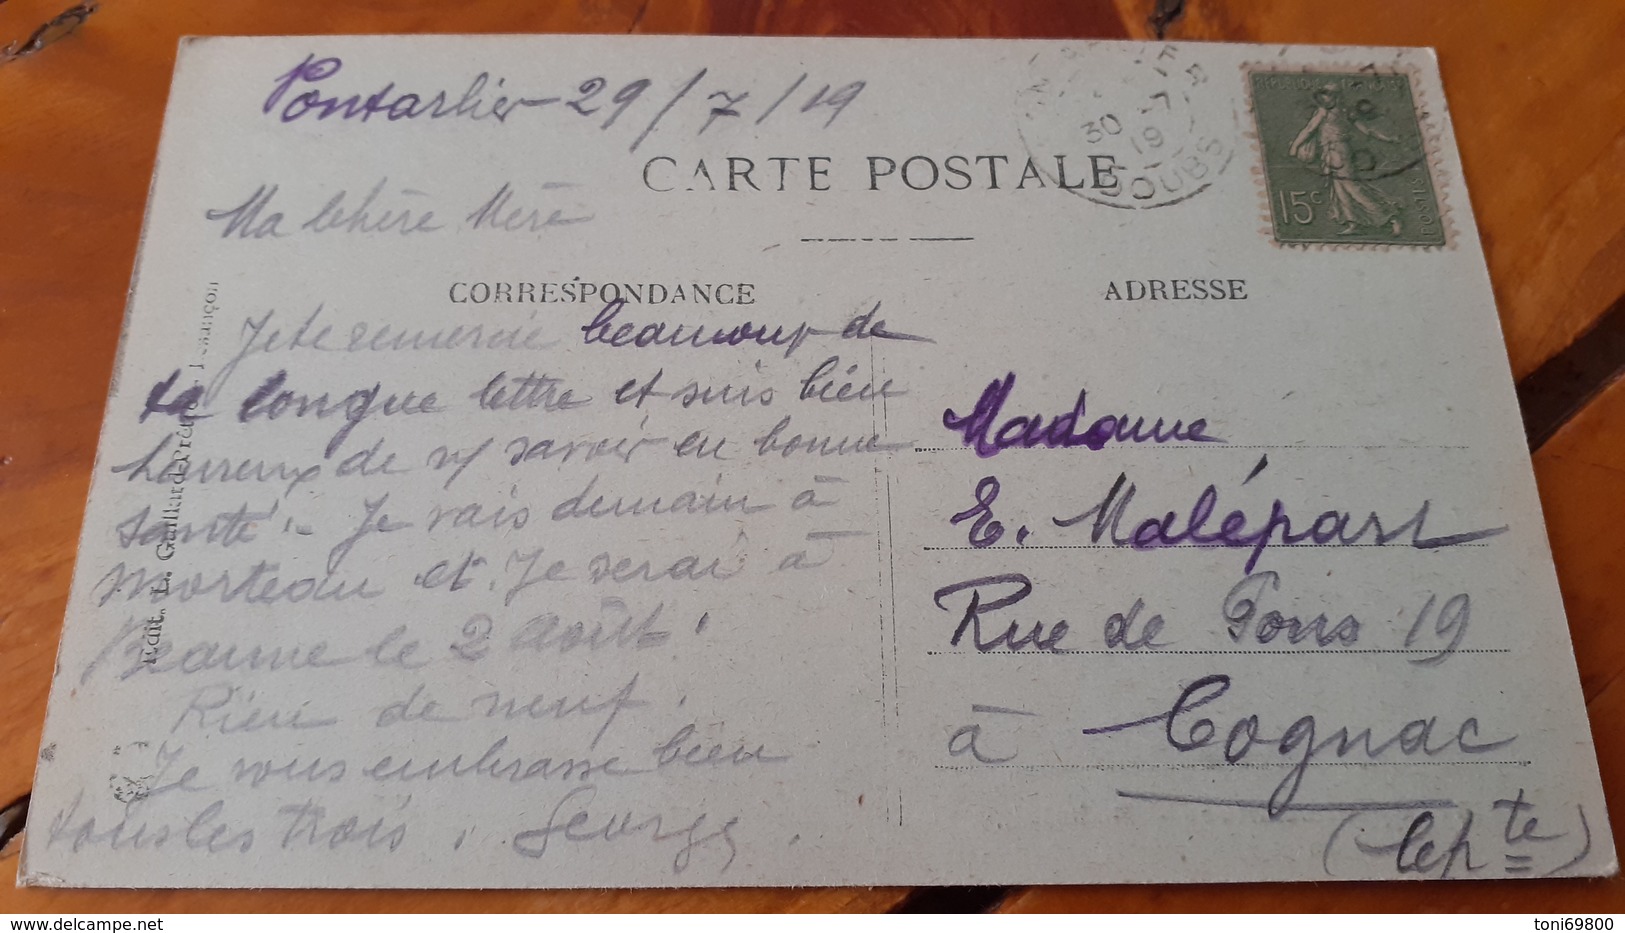 Pontarlier 29/7/19
CARTE POSTALE
Ma chère Mère
CORRESPONDANCE
Je te remercie beaucoup de
ta longue lettre et suis bien
heureux de vs savoir en bonne
santé. - Je vais demain à
Morteau et Je serai à
Beaune le 2 août.
Rien de neuf.
Je vous embrasse bien
tous les trois. George
ADRESSE
Madame
E. Malépart
Rue de Pons 19
à Cognac
(Chte)
30 -7
19
DOUBS
15c
Edit. L. Gaillard-Prêtre, Besançon
toni69800